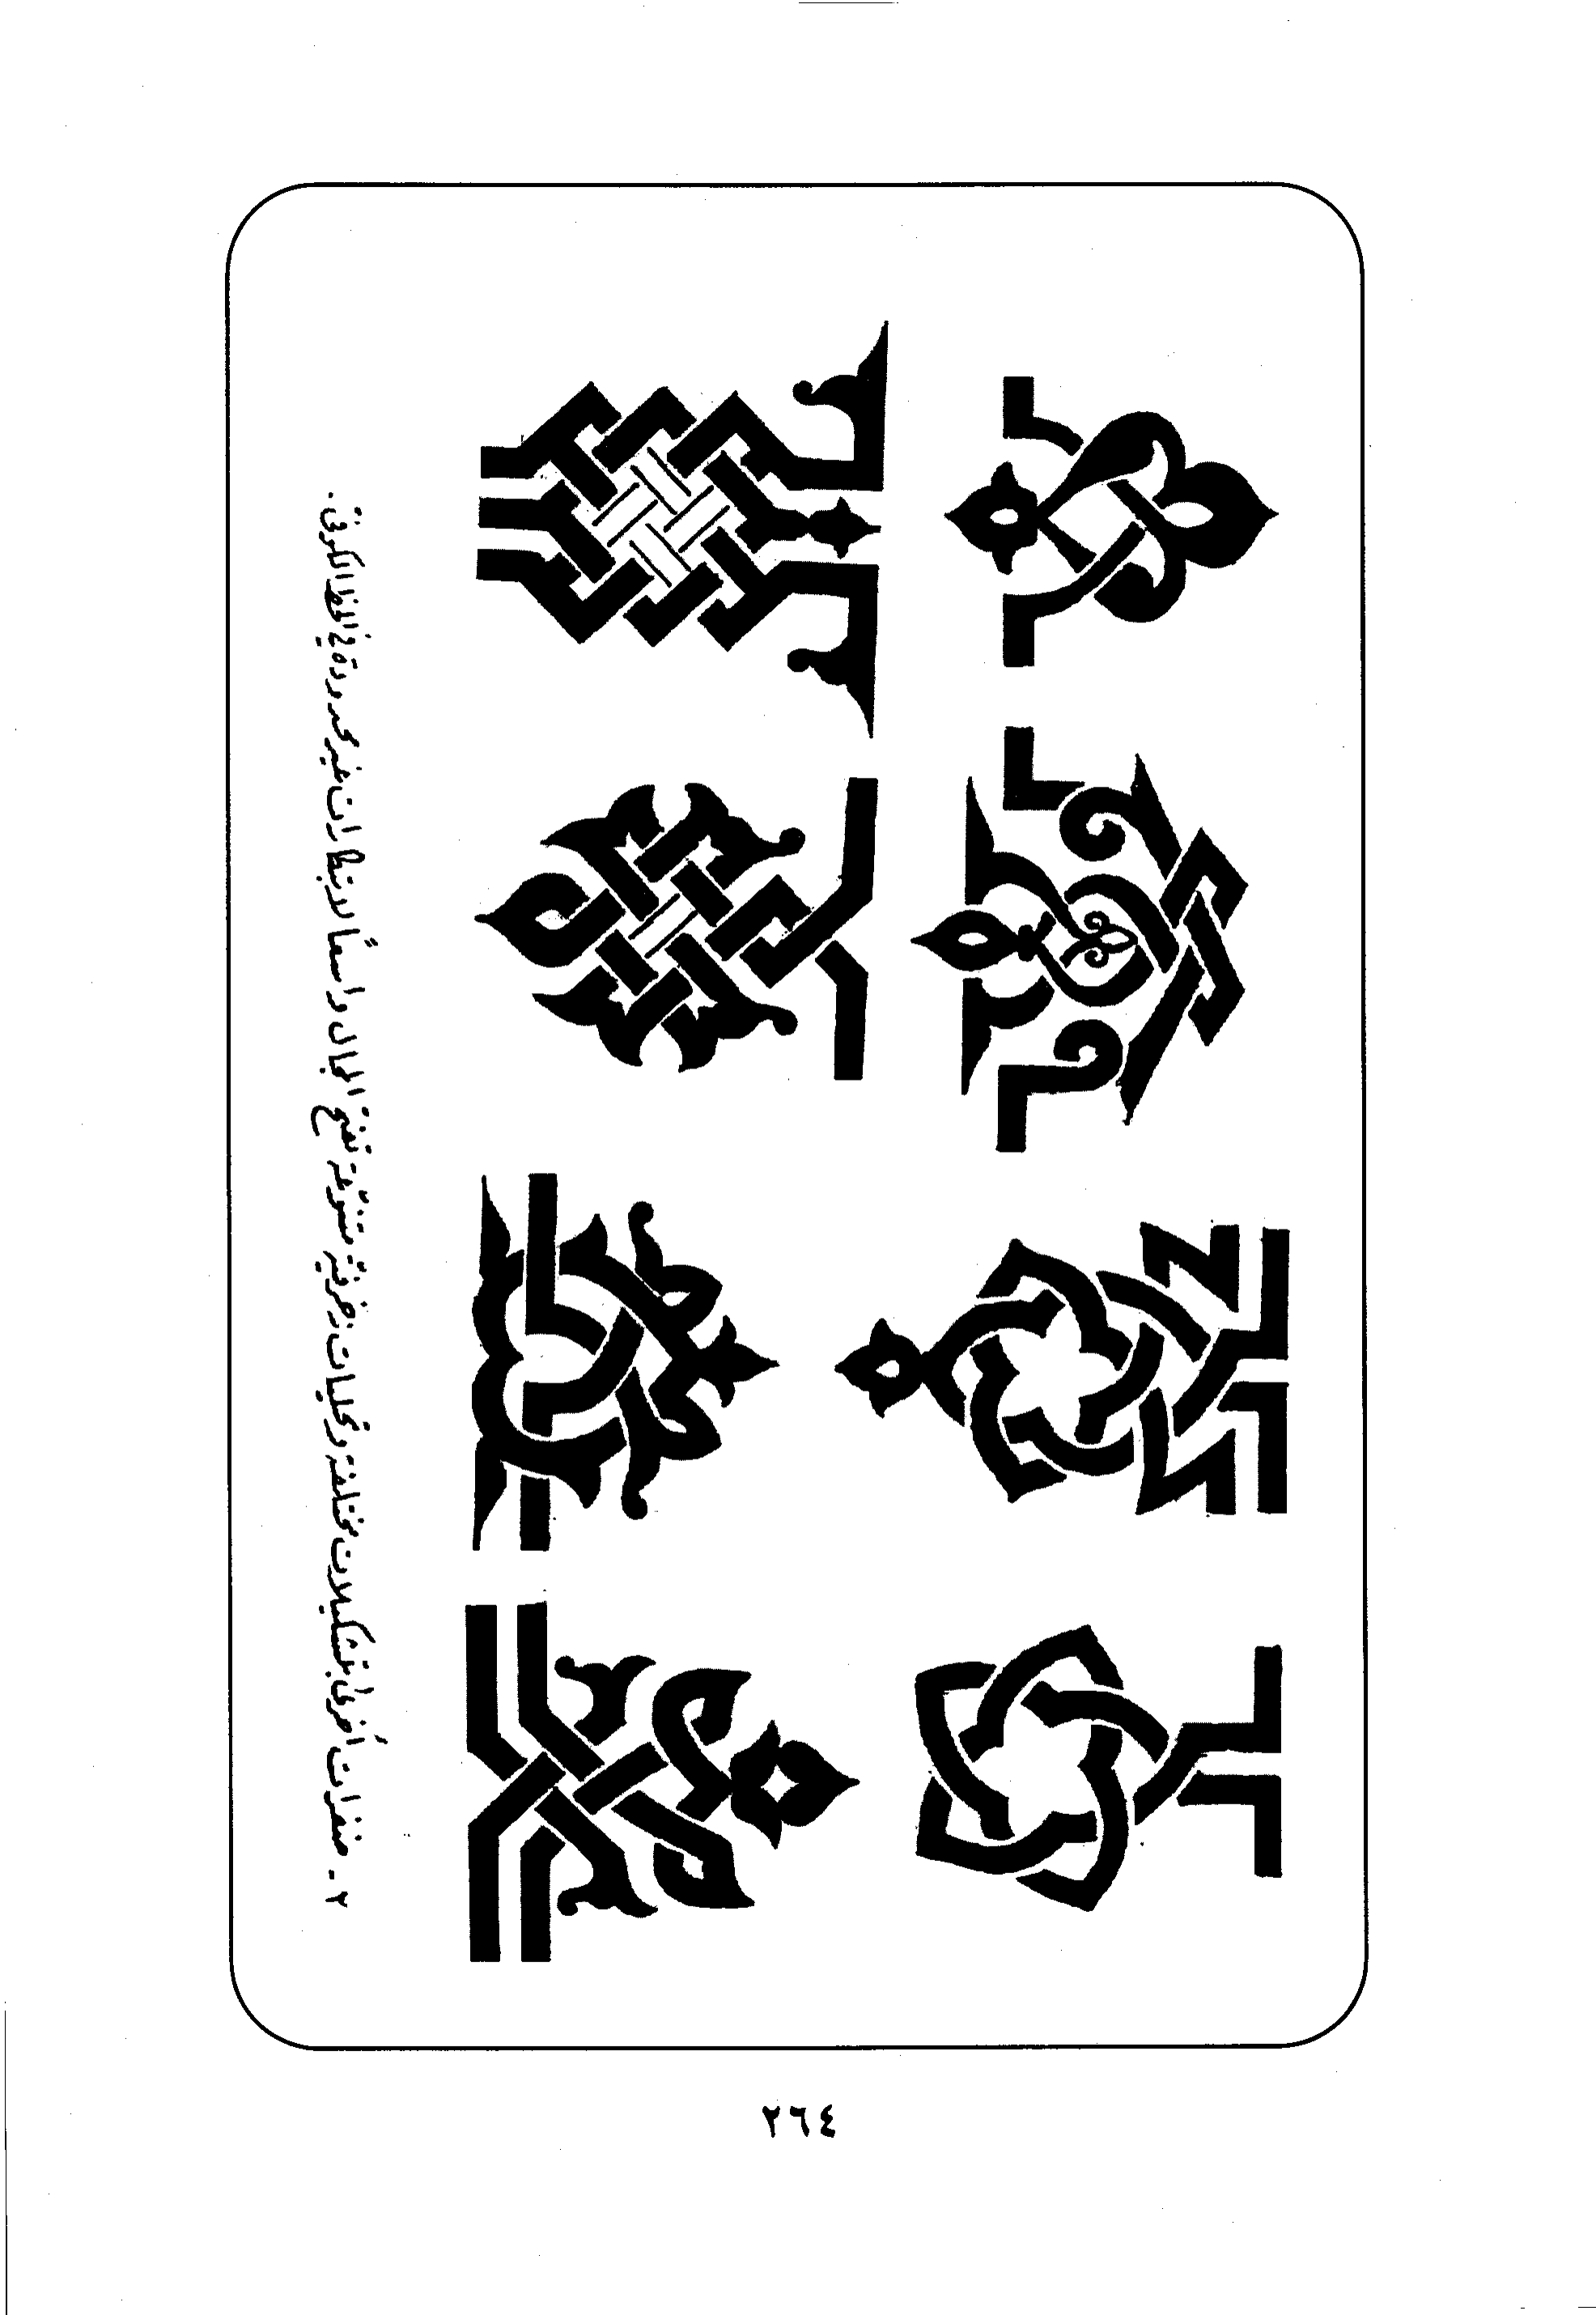 ٢ - مختارات أخرى لتشكيلات مختلفة وتركيبات زخرفية تفتح المجال واسعاً لابتكارات غير محدودة في الخط الكوفي .
٢٦٤